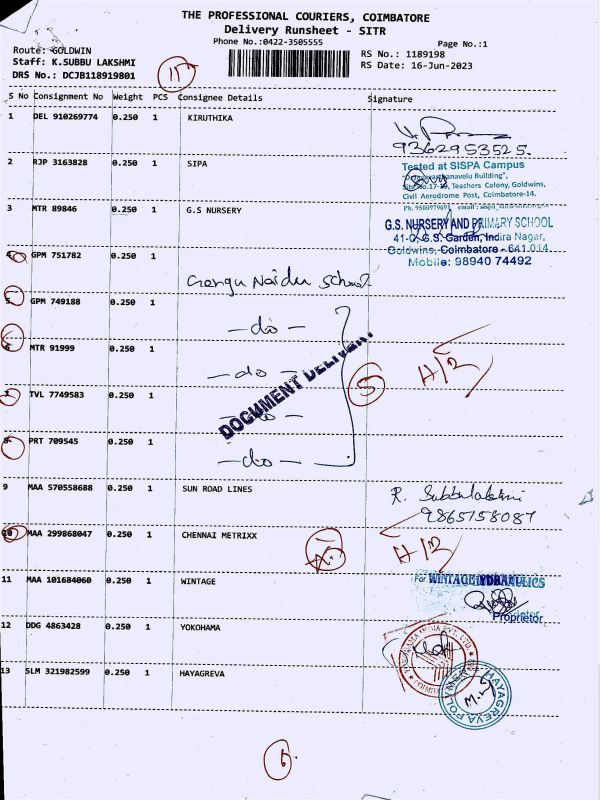 THE PROFESSIONAL COURIERS, COIMBATORE
Delivery Runsheet - SITR
Phone No.:0422-3505555
Page No.:1
Route: GOLDWIN
Staff: K.SUBBU LAKSHMI
DRS No.: DCJB118919801
RS No.: 1189198
RS Date: 16-Jun-2023
S No Consignment No Weight PCS Consignee Details Signature
1 DEL 910269774 0.250 1 KIRUTHIKA
9362953525
2 RJP 3163828 0.250 1 SIPA
Tested at SISPA Campus
Teachers Colony, Goldwins,
Civil Aerodrome Post, Coimbatore-14.
3 MTR 89846 0.250 1 G.S NURSERY
G.S. NURSERY AND PRIMARY SCHOOL
41-C, G.S. Garden, Indira Nagar,
Goldwins, Coimbatore - 641 014
Mobile: 98940 74492
4 GPM 751782 0.250 1
Gengu Naidu School
5 GPM 749188 0.250 1
- do -
6 MTR 91999 0.250 1
- do -
DOCUMENT DELIVERY
5
H/B
7 TVL 7749583 0.250 1
- do -
8 PRT 709545 0.250 1
- do -
9 MAA 570558688 0.250 1 SUN ROAD LINES
R. Subbulakshmi
9865158087
10 MAA 299868047 0.250 1 CHENNAI METRIXX
H/B
11 MAA 101684060 0.250 1 WINTAGE
For WINTAGE HYDRAULICS
Proprietor
12 DDG 4863428 0.250 1 YOKOHAMA
13 SLM 321982599 0.250 1 HAYAGREVA
HAYAGREVA POLYMER
6